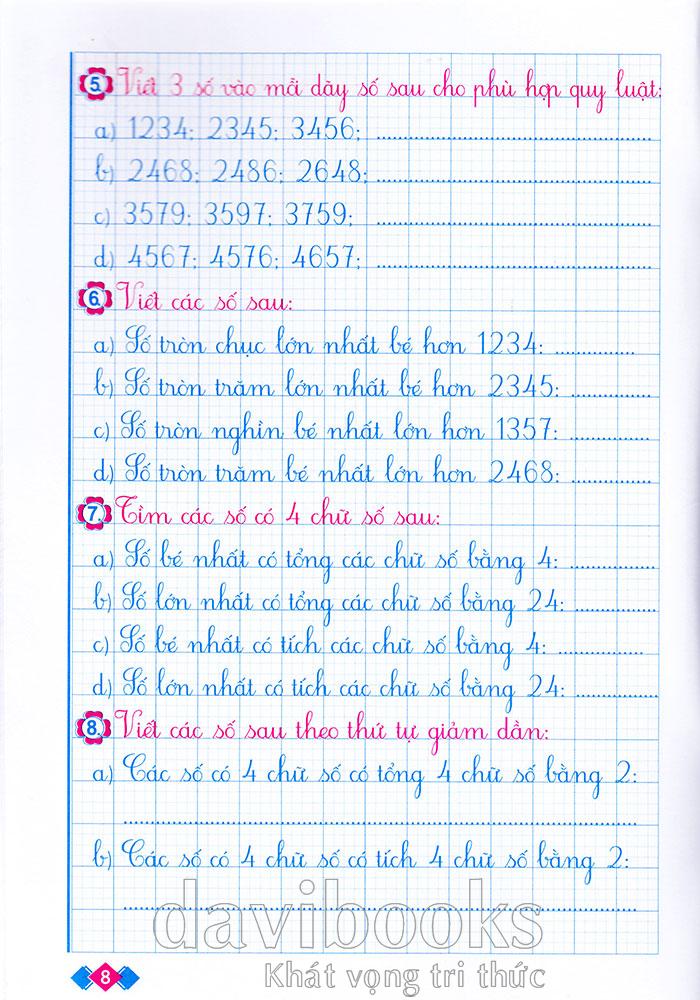 5. Viết 3 số vào mỗi dãy số sau cho phù hợp quy luật:
a) 1234; 2345; 3456; ..........
b) 2468; 2486; 2648; ..........
c) 3579; 3597; 3759; ..........
d) 4567; 4576; 4657; ..........
6. Viết các số sau:
a) Số tròn chục lớn nhất bé hơn 1234: ..........
b) Số tròn trăm lớn nhất bé hơn 2345: ..........
c) Số tròn nghìn bé nhất lớn hơn 1357: ..........
d) Số tròn trăm bé nhất lớn hơn 2468: ..........
7. Tìm các số có 4 chữ số sau:
a) Số bé nhất có tổng các chữ số bằng 4: ..........
b) Số lớn nhất có tổng các chữ số bằng 24: ..........
c) Số bé nhất có tích các chữ số bằng 4: ..........
d) Số lớn nhất có tích các chữ số bằng 24: ..........
8. Viết các số sau theo thứ tự giảm dần:
a) Các số có 4 chữ số có tổng 4 chữ số bằng 2:
..........
b) Các số có 4 chữ số có tích 4 chữ số bằng 2:
..........
davibooks
Khát vọng tri thức
8